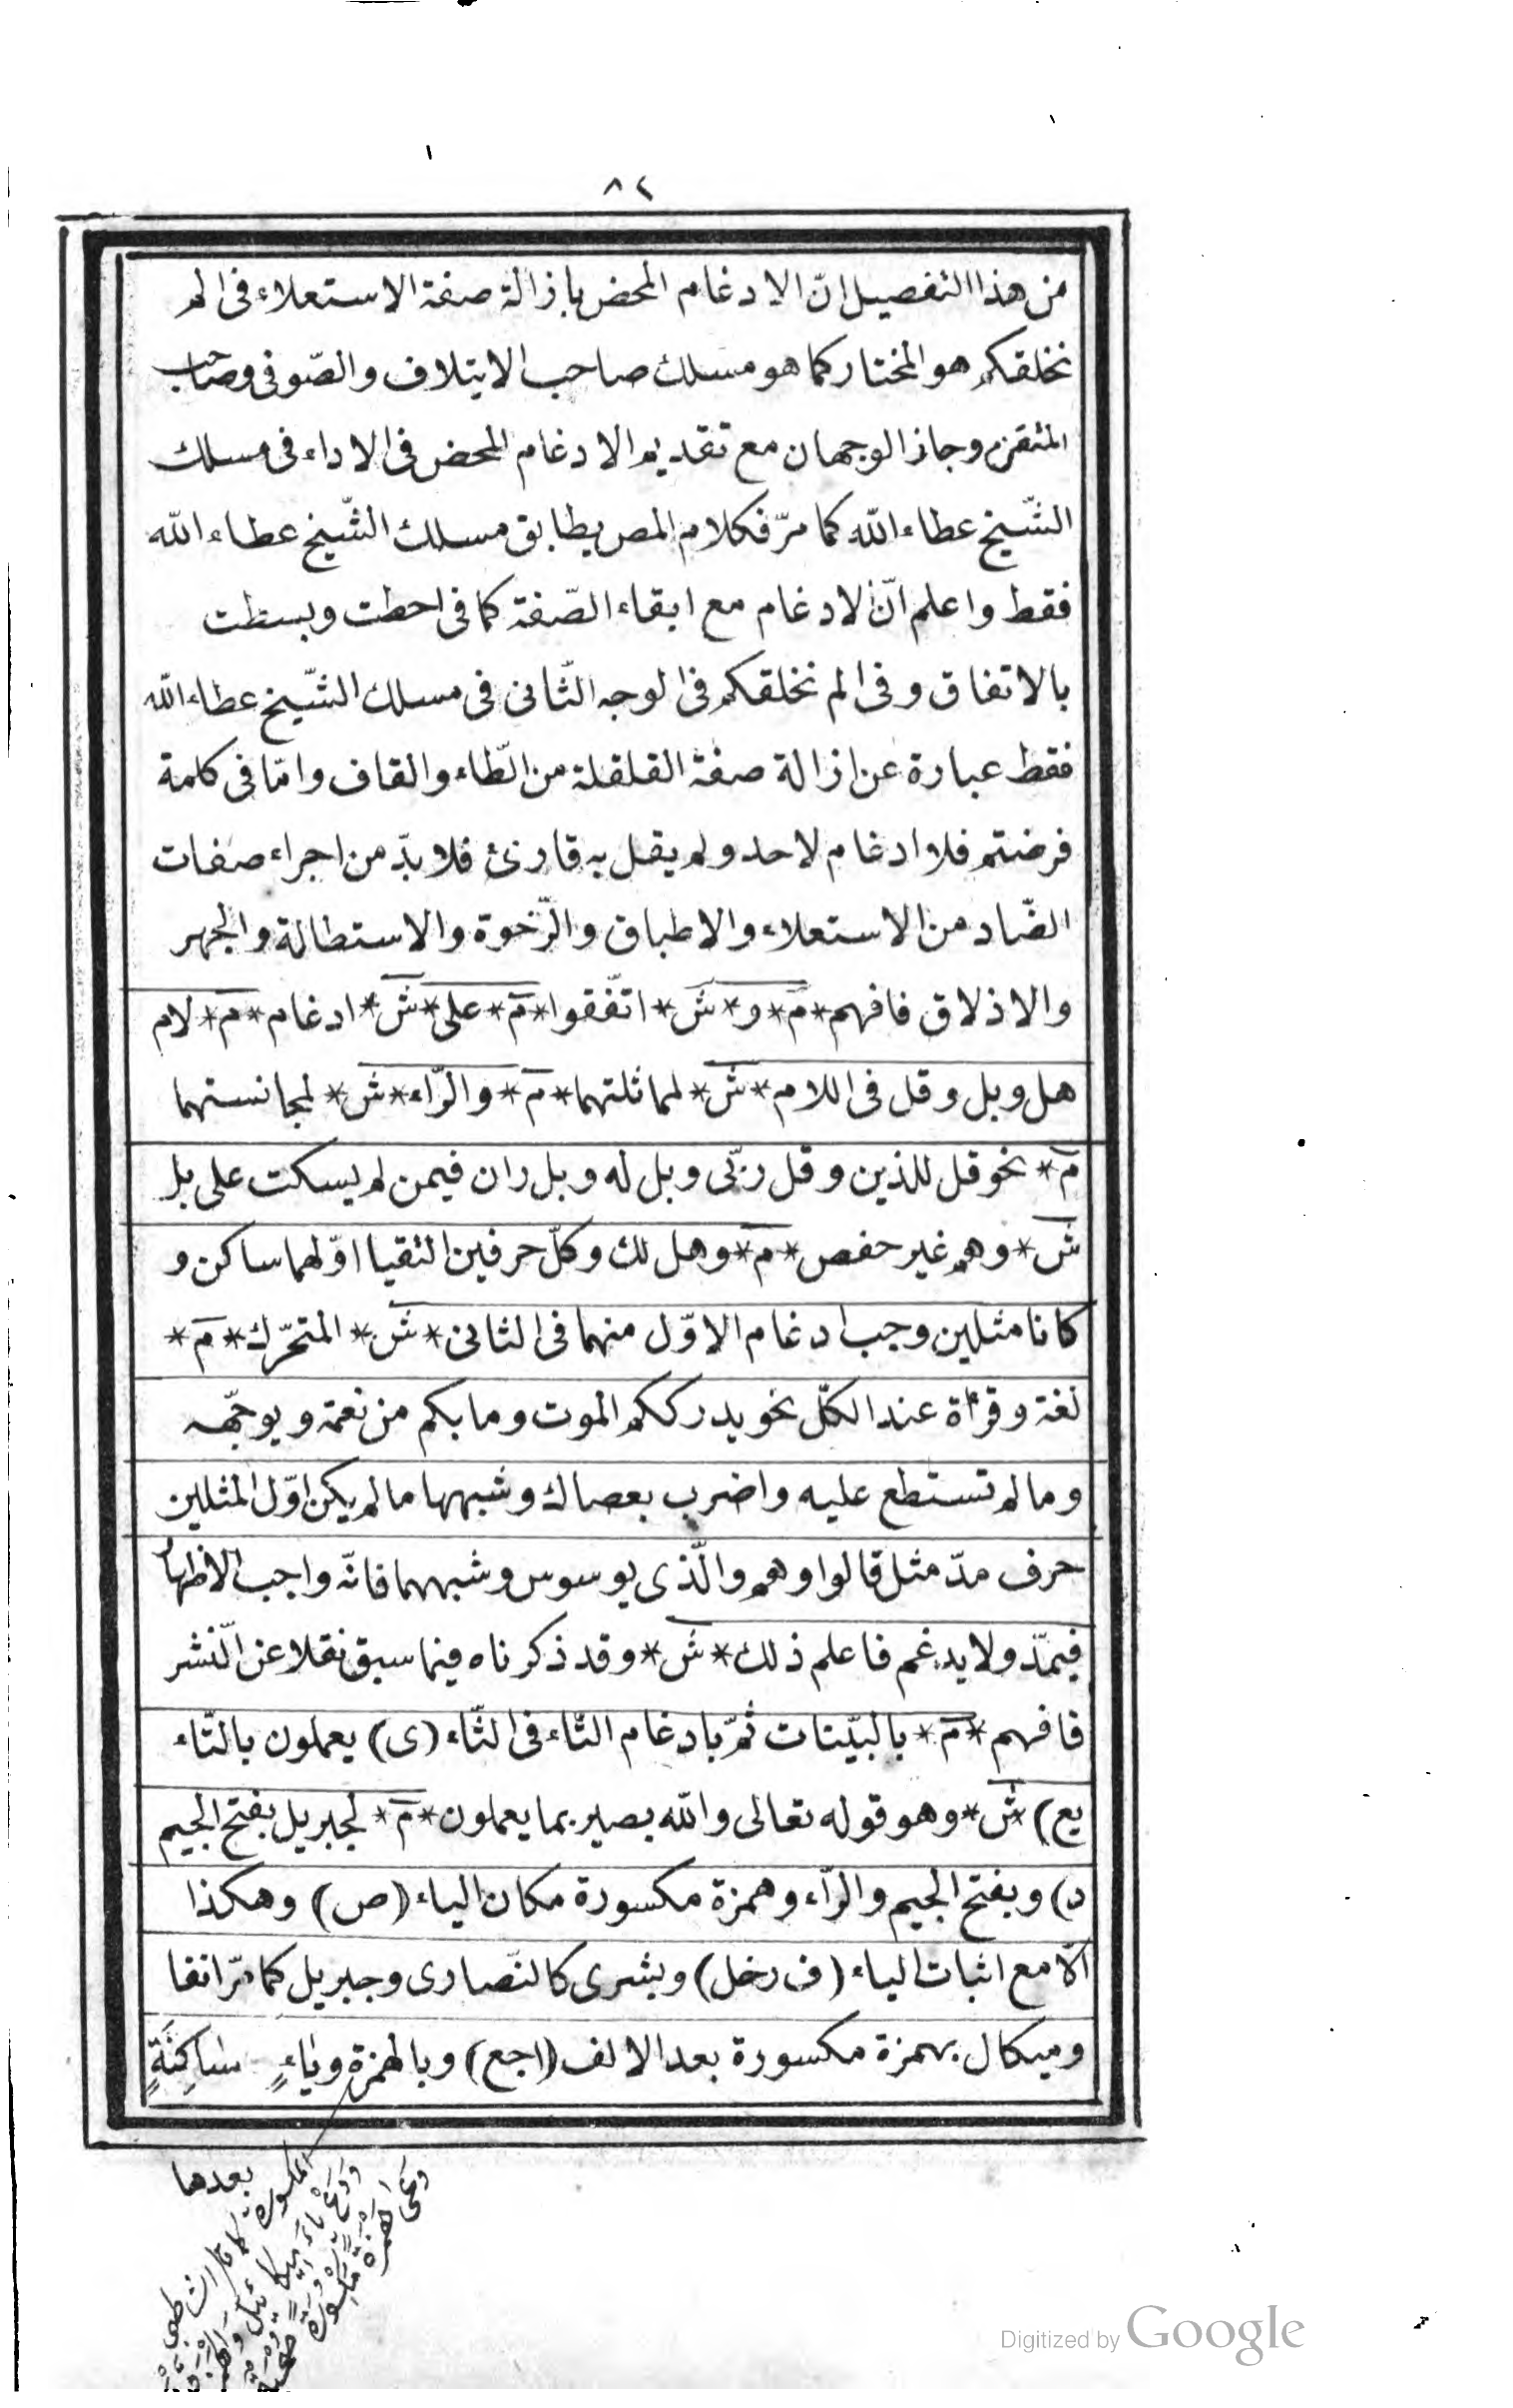 ٨٢
من هذا التفصيل انّ الادغام المحض بازالة صفة الاستعلاء فى الم
نخلقكم هو المختار كما هو مسلك صاحب الايتلاف والصّوفى وصاحب
المتقن وجاز الوجهان مع تقديم الادغام المحض فى الاداء فى مسلك
الشّيخ عطاء الله كما مرّ فكلام المص يطابق مسلك الشّيخ عطاء الله
فقط واعلم انّ الادغام مع ابقاء الصّفة كما فى احطت وبسطت
بالاتفاق وفى الم نخلقكم فى الوجه الثّانى فى مسلك الشّيخ عطاء الله
فقط عبارة عن ازالة صفة القلقلة من الطّاء والقاف وامّا فى كلمة
فرضتم فلا ادغام لاحد ولم يقل به قارئ فلا بدّ من اجراء صفات
الضّاد من الاستعلاء والاطباق والرّخوة والاستطالة والجهر
والاذلاق فافهم * م * و * ش * اتّفقوا * م * على * ش * ادغام * م * لام
هل وبل وقل فى اللام * ش * لمماثلتهما * م * والرّاء * ش * لمجانستهما
م * نحو قل للذين وقل ربّى وبل له وبل ران فيمن لم يسكت على بل
ش * وهم غير حفص * م * وهل لك وكلّ حرفين التقيا اوّلهما ساكن و
كانا مثلين وجب ادغام الاوّل منهما فى الثانى * ش * المتحرّك * م *
لغة وقرأة عند الكلّ نحو يدرككم الموت وما بكم من نعمة ويوجّهه
وما لم تستطع عليه واضرب بعصاك وشبهها ما لم يكن اوّل المثلين
حرف مدّ مثل قالوا وهم والّذى يوسوس وشبههما فانّه واجب الاظهار
فيمدّ ولا يدغم فاعلم ذلك * ش * وقد ذكرناه فيما سبق نقلا عن النّشر
فافهم * م * بالبيّنات ثمّ بادغام التّاء فى الثّاء (ى) يعملون بالتّاء
يع) * ش * وهو قوله تعالى والله بصير بما يعملون * م * لجبريل بفتح الجيم
د) وبفتح الجيم والرّاء وهمزة مكسورة مكان الياء (ص) وهكذا
الّا مع اثبات الياء (ف رخل) وبشرى كالنّصارى وجبريل كما مرّ انفا
وميكال بهمزة مكسورة بعد الالف (اجع) وبالهمزة وياءٍ ساكِنَةٍ
بعدها
المكسورة
Digitized by Google